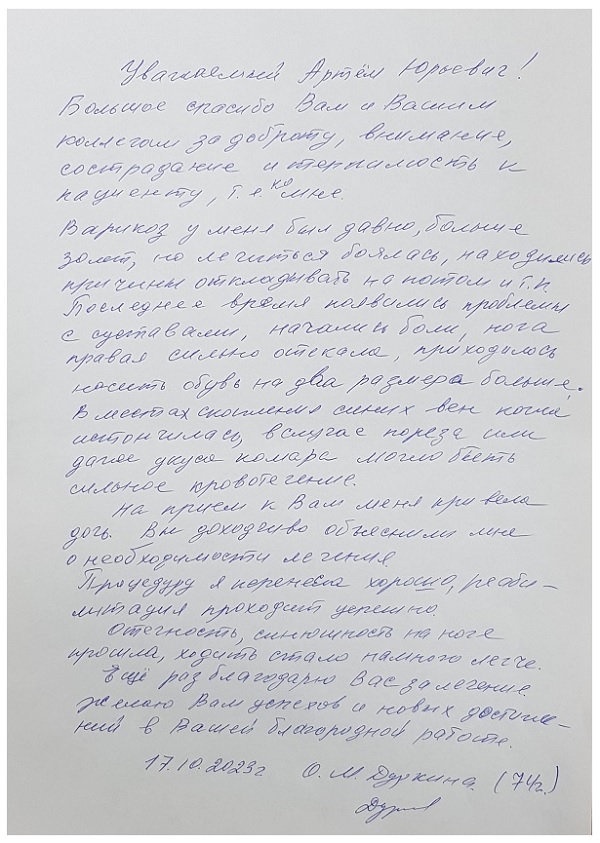 Уважаемый Артём Юрьевич!
Большое спасибо Вам и Вашим
коллегам за доброту, внимание,
сострадание и терпимость к
пациенту, т.е. ко мне.
Варикоз у меня был давно, больше
золет, но лечиться боялась, находились
причины откладывать на потом и т.п
Последнее время появились проблемы
с суставами, начались боли, нога
правая сильно отекала, приходилось
носить обувь на два размера больше.
В местах скопления синих вен кожа
истончилась, в случае пореза или
даже укуса комара могло быть
сильное кровотечение.
На прием к Вам меня привела
дочь. Вы доходчиво объяснили мне
о необходимости лечения.
Процедуру я перенесла хорошо, реаби-
литация проходит успешно.
Отечность, синюшность на ноге
прошла, ходить стало намного легче.
Ещё раз благодарю Вас за лечение
желаю Вам успехов и новых достиже-
ний в Вашей благородной работе.
17.10.2023г О.М.Дуркина. (74г.)